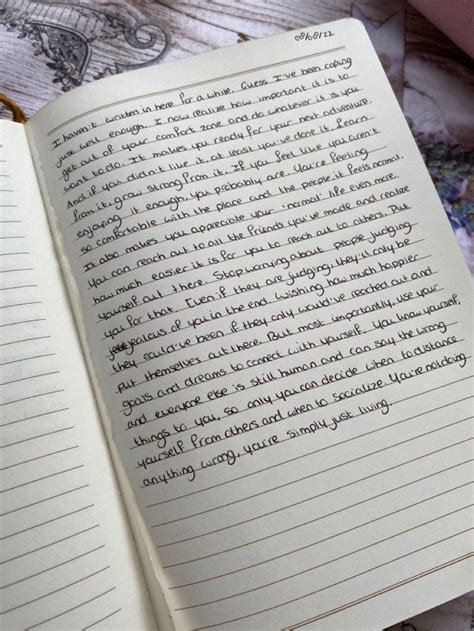 08/08/22
I haven't written in here for a while. Guess I've been coping
just well enough. I now realize how important it is to
get out of your comfort zone and do whatever it is you
want to do. It makes you ready for your next adventure.
And if you didn't like it, at least you've done it. Learn
from it, grow strong from it. If you feel like you aren't
enjoying it enough, you probably are. You're feeling
so comfortable with the place and the people, it feels normal.
It also makes you appreciate your 'normal' life even more.
You can reach out to all the friends you've made and realize
how much easier it is for you to reach out to others. Put
yourself out there. Stop worrying about people judging
you for that. Even if they are judging, they'll only be
jealous of you in the end. Wishing how much happier
they could've been if they only would've reached out and
put themselves out there. But most importantly, use your
goals and dreams to connect with yourself. You know yourself,
and everyone else is still human and can say the wrong
things to you, so only you can decide when to distance
yourself from others and when to socialize. You're not doing
anything wrong, you're simply just living.